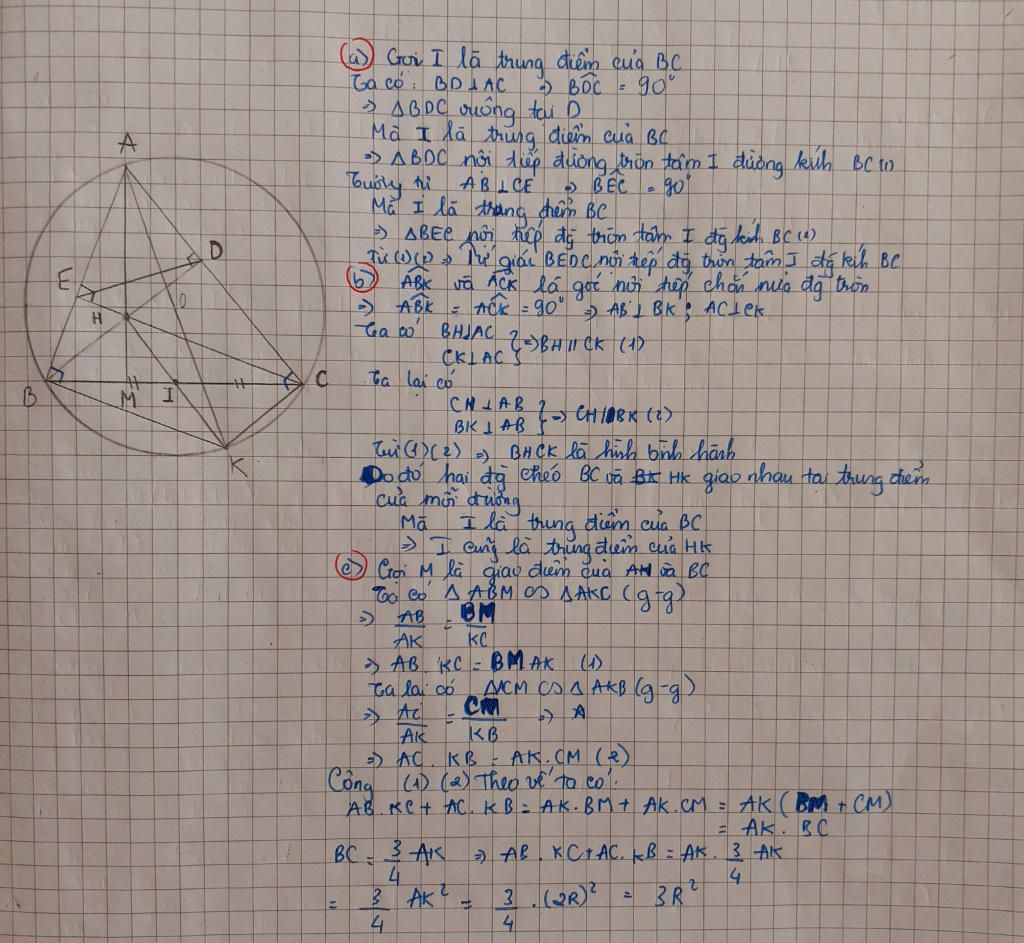 a) Gọi I là trung điểm của BC
Ta có: BD⊥AC => BDC = 90°
=> ΔBDC vuông tại D
Mà I là trung điểm của BC
=> ΔBDC nội tiếp đường tròn tâm I đường kính BC (1)
Tương tự AB⊥CE => BEC = 90°
Mà I là trung điểm BC
=> ΔBEC nội tiếp đg tròn tâm I đg kính BC (2)
Từ (1)(2) => Tứ giác BEDC nội tiếp đg tròn tâm I đg kính BC
b) ABK và ACK là góc nội tiếp chắn nửa đg tròn
=> ABK = ACK = 90° => AB⊥BK; AC⊥CK
Ta có BH⊥AC
CK⊥AC } => BH // CK (1)
Ta lại có
CH⊥AB
BK⊥AB } => CH // BK (2)
Từ (1)(2) => BHCK là hình bình hành
Do đó hai đg chéo BC và HK giao nhau tại trung điểm
của mỗi đường
Mà I là trung điểm của BC
=> I cũng là trung điểm của HK
c) Gọi M là giao điểm của AH và BC
Ta có Δ ABM ∽ ΔAKC (g-g)
=> AB/AK = BM/KC
=> AB . KC = BM AK (1)
Ta lại có ΔACM ∽ Δ AKB (g-g)
=> AC/AK = CM/KB => A
=> AC . KB = AK . CM (2)
Cộng (1) (2) theo vế ta có:
AB . KC + AC . KB = AK . BM + AK . CM = AK (BM + CM)
= AK . BC
BC = 3/4 AK => AB . KC + AC . KB = AK . 3/4 AK
= 3/4 AK² = 3/4 . (2R)² = 3R²
A
D
E
O
H
B
M
I
C
K